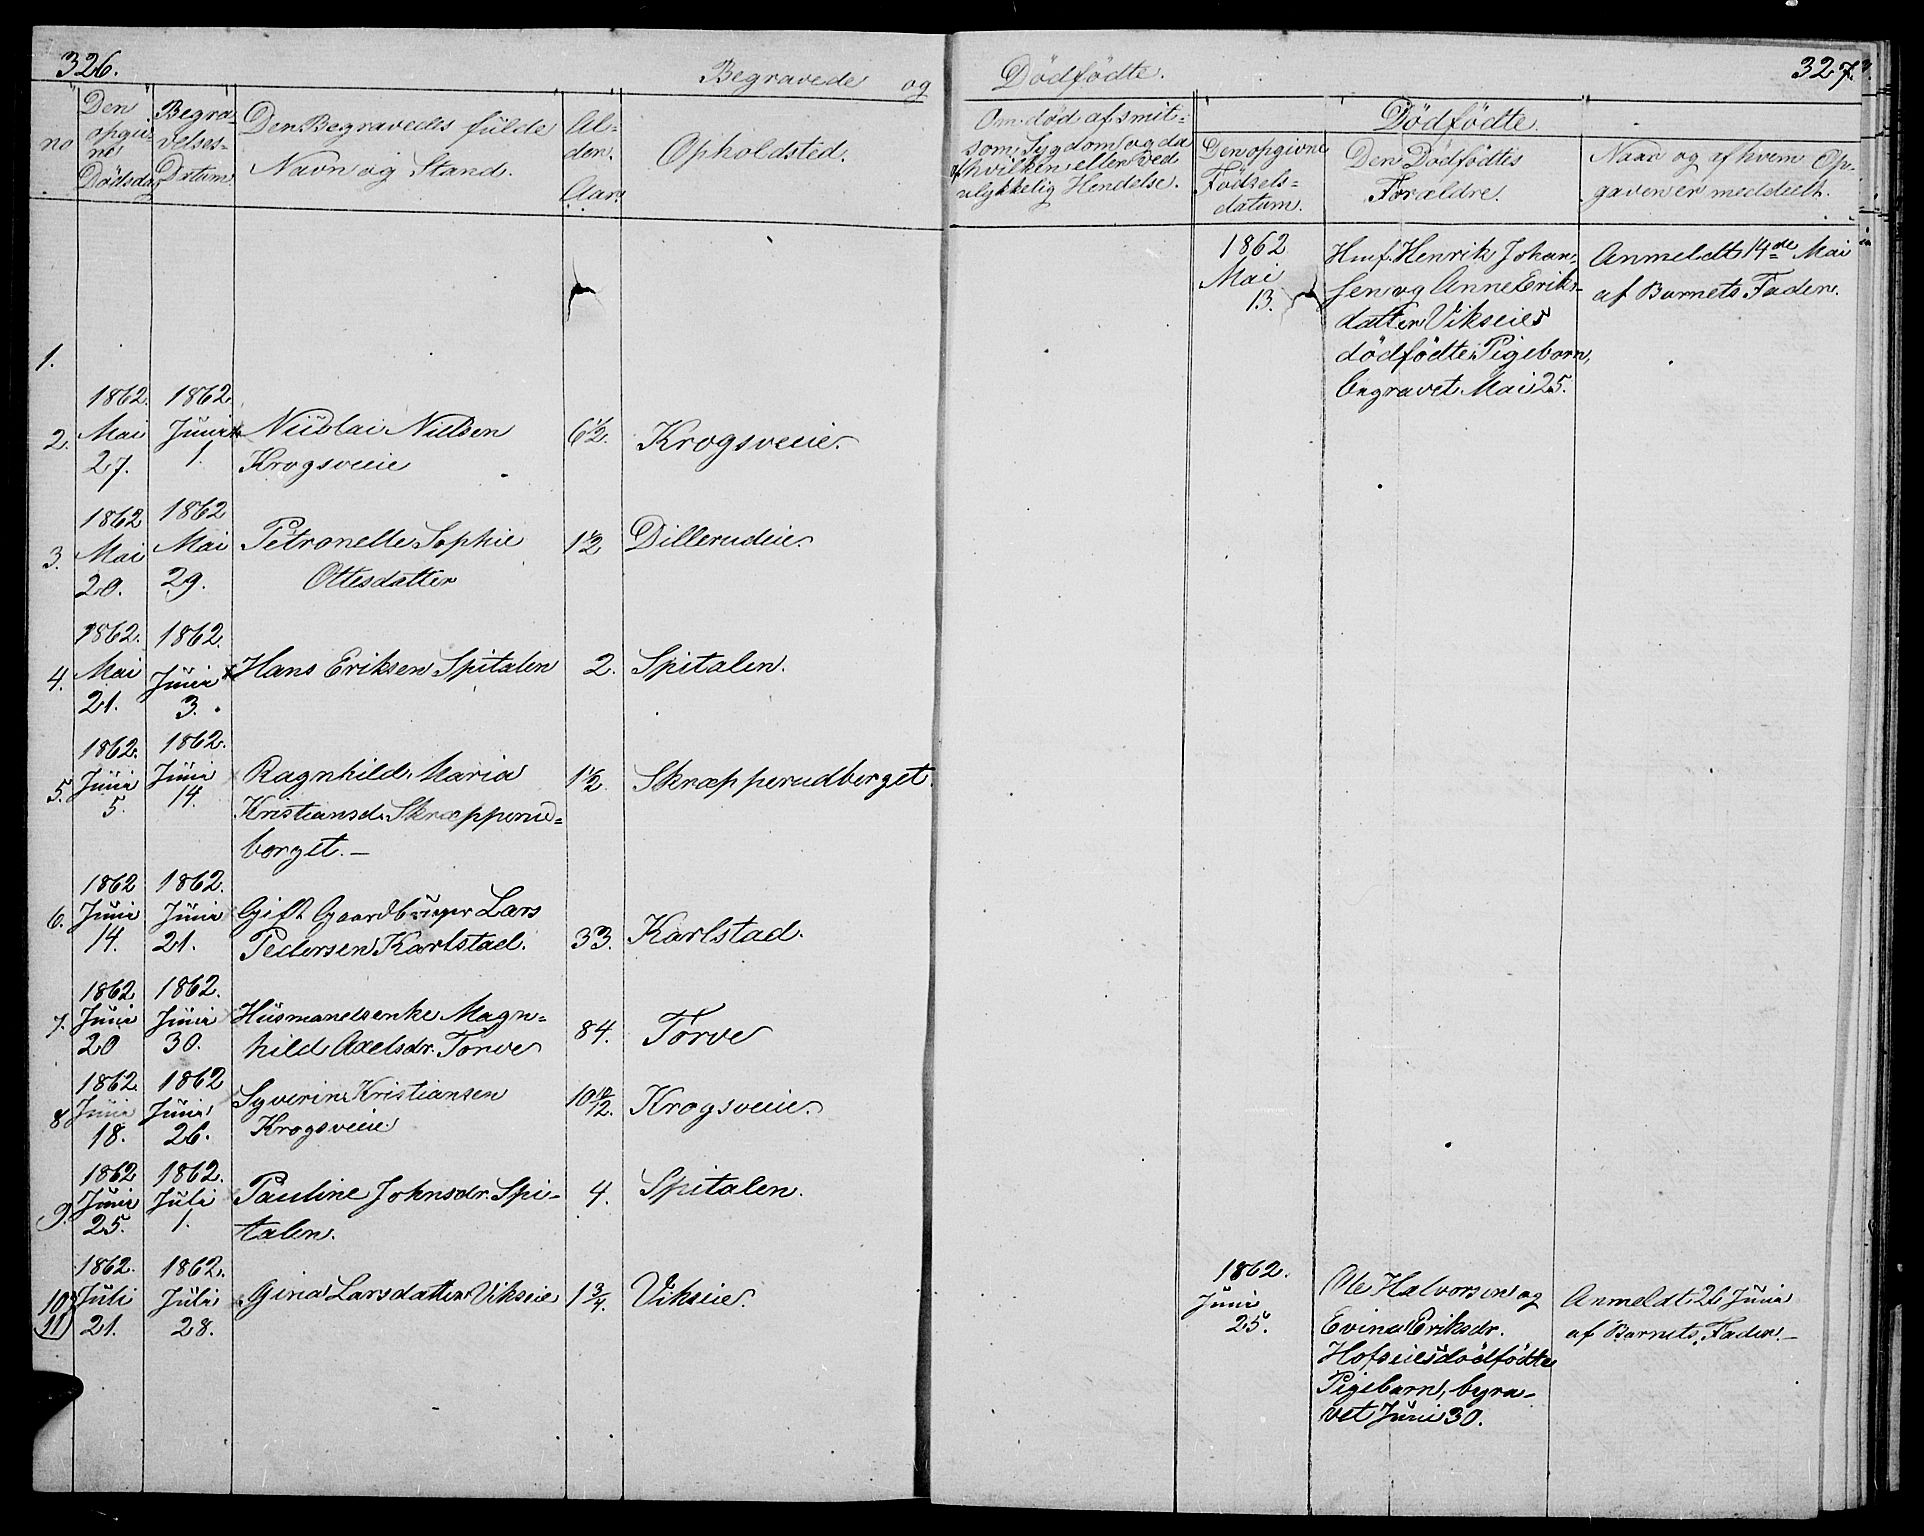 326.
Begravede og Dödfödte.
327.
no
Den opgivne Dödsdag
Begravelses-Datum.
Den Begravedes fulde
Navn og Stand.
Alder.
Aar.
Opholdsted.
Om död af smit-
som Sygdom og da
af hvilken eller ved
ulykkelig Hendelse.
Dödfödte.
Den opgivne
Födsels-
datum.
Den Dödfödtes
Foraldre.
Naar og af hvem Op-
gaven er meddeelt.
1.
1862
Mai
13.
Husf. Henrik Johan-
sen og Anne Eriks-
datter Vikseies
dödfödte Pigebarn,
begravet Mai 25.
Anmeldt 14de Mai
af Barnets Fader.
1862. 1862.
2. Mai Juni Nicolai Nielsen 6½. Krogsveie.
27. 1. Krogsveie
1862 1862
3. Mai Mai Petronelle Sophie 1½ Dillerudeie.
20. 29. Ottesdatter
1862. 1862.
4. Mai Juni Hans Eriksen Spitalen 2. Spitalen.
21. 3.
1862. 1862.
5. Juni Juni Ragnhild Maria 1½. Skrapperudberget.
5. 14. Kristiansd. Skrapperud=
berget.—
1862 1862.
6. Juni Juni Gift Gaardbruger Lars
14. 21. Pedersen Karlstad. 33. Karlstad.
1862 1862.
7. Juni Juni Husmandsenke Magn= 84. Torve
20 30. hild Axelsdr. Torve
1862. 1862
8. Juni Juni Syverin Kristiansen 10 10/12. Krogsveie.
18. 26. Krogsveie
1862 1862.
9. Juni Juli Pauline Johnsdr. Spi- 4. Spitalen.
25. 1. talen.
1862. 1862.
10. Juli Juli Gina Larsdatter Vikseie 1¾. Vikseie.
11 21. 28.
1862.
Juni
25.
Ole Halvorsen og
Evine Eriksdr.
Hofseies dödfödte
Pigebarn, begra-
vet Juni 30.
Anmeldt 26 Juni
af Barnets Fader.—